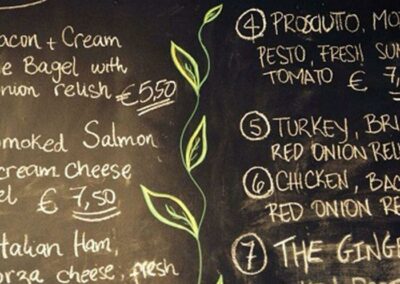 acon + Cream
e Bagel with
nion relish €5.50
moked Salmon
cream cheese
el € 7,50
talian Ham,
orza cheese, fresh
④ PROSCIUTTO, MO
PESTO, FRESH SUN
TOMATO € 7,
⑤ TURKEY, BRI
RED ONION REL
⑥ CHICKEN, BAC
RED ONION RE
⑦ THE GINGE